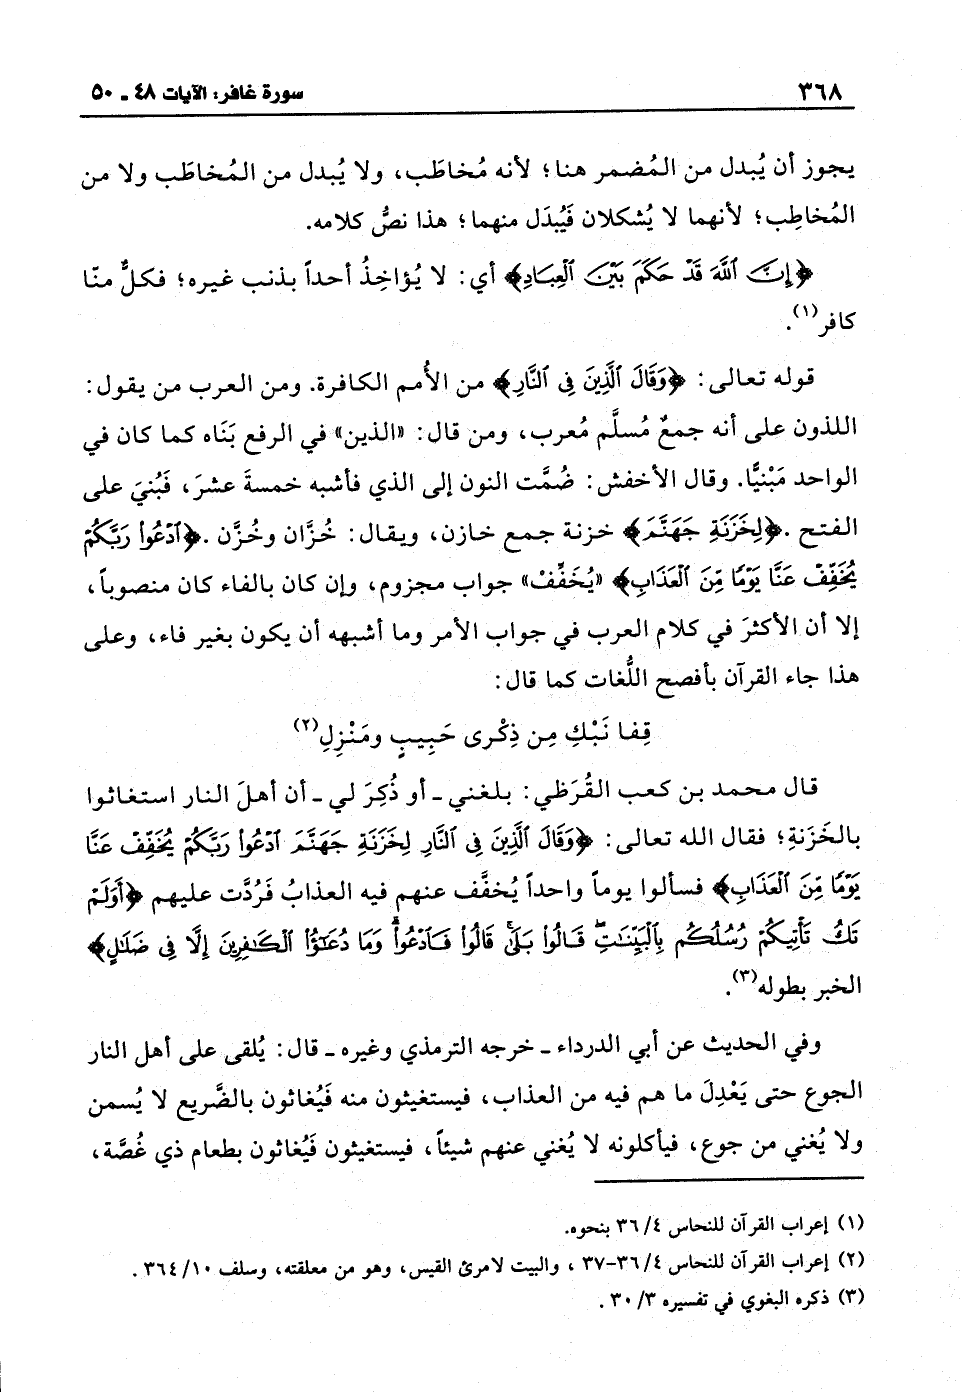 ٣٦٨
سورة غافر: الآيات ٤٨ ـ ٥٠
يجوز أن يُبدل من المُضمر هنا؛ لأنه مُخاطَب، ولا يُبدل من المُخاطَب ولا من
المُخاطِب؛ لأنهما لا يُشكلان فَيُبدَل منهما؛ هذا نصُّ كلامه.
﴿إِنَّ ٱللَّهَ قَدْ حَكَمَ بَيْنَ ٱلْعِبَادِ﴾ أي: لا يُؤاخِذُ أحداً بذنب غيره؛ فكلٌّ منّا
كافر(١).
قوله تعالى: ﴿وَقَالَ ٱلَّذِينَ فِى ٱلنَّارِ﴾ من الأُمم الكافرة. ومن العرب من يقول:
اللذون على أنه جمعٌ مُسلَّم مُعرب، ومن قال: «الذين» في الرفع بَنَاه كما كان في
الواحد مَبْنيًّا. وقال الأخفش: ضُمَّت النون إلى الذي فأشبه خمسةَ عشرَ، فَبُنيَ على
الفتح. ﴿لِخَزَنَةِ جَهَنَّمَ﴾ خزنة جمع خازن، ويقال: خُزَّان وخُزَّن. ﴿ٱدْعُوا۟ رَبَّكُمْ
يُخَفِّفْ عَنَّا يَوْمًا مِّنَ ٱلْعَذَابِ﴾ «يُخَفِّفْ» جواب مجزوم، وإن كان بالفاء كان منصوباً،
إلا أن الأكثرَ في كلام العرب في جواب الأمر وما أشبهه أن يكون بغير فاء، وعلى
هذا جاء القرآن بأفصح اللُّغات كما قال:
قِفا نَبْكِ مِن ذِكْرى حَبِيبٍ ومَنْزِلِ(٢)
قال محمد بن كعب القُرَظي: بلغني ـ أو ذُكِرَ لي ـ أن أهلَ النار استغاثوا
بالخَزَنةِ؛ فقال الله تعالى: ﴿وَقَالَ ٱلَّذِينَ فِى ٱلنَّارِ لِخَزَنَةِ جَهَنَّمَ ٱدْعُوا۟ رَبَّكُمْ يُخَفِّفْ عَنَّا
يَوْمًا مِّنَ ٱلْعَذَابِ﴾ فسألوا يوماً واحداً يُخفَّف عنهم فيه العذابُ فَرُدَّت عليهم ﴿أَوَلَمْ
تَكُ تَأْتِيكُمْ رُسُلُكُم بِٱلْبَيِّنَـٰتِ ۖ قَالُوا۟ بَلَىٰ ۚ قَالُوا۟ فَٱدْعُوا۟ ۗ وَمَا دُعَـٰٓؤُا۟ ٱلْكَـٰفِرِينَ إِلَّا فِى ضَلَـٰلٍ﴾
الخبر بطوله(٣).
وفي الحديث عن أبي الدرداء ـ خرجه الترمذي وغيره ـ قال: يُلقى على أهل النار
الجوع حتى يَعْدِلَ ما هم فيه من العذاب، فيستغيثون منه فَيُغاثون بالضَّريع لا يُسمن
ولا يُغني من جوع، فيأكلونه لا يُغني عنهم شيئاً، فيستغيثون فَيُغاثون بطعام ذي غُصَّة،
(١) إعراب القرآن للنحاس ٤/ ٣٦ بنحوه.
(٢) إعراب القرآن للنحاس ٤/ ٣٦-٣٧، والبيت لامرئ القيس، وهو من معلقته، وسلف ١٠/ ٣٦٤.
(٣) ذكره البغوي في تفسيره ٣/ ٣٠.